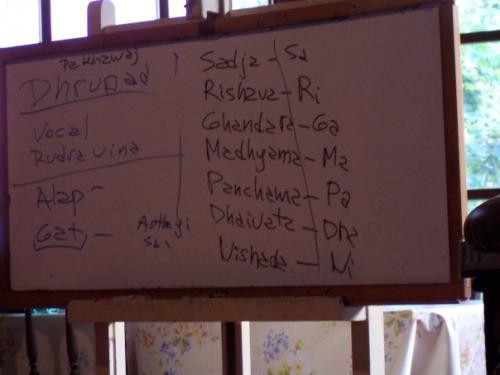 Pakhawaj
Dhrupad
Vocal
Rudra vina
Alap -
Gat - Asthayi
Sadja - Sa
Rishava - Ri
Ghandara - Ga
Madhyama - Ma
Panchama - Pa
Dhaivata - Dha
Nishada - Ni